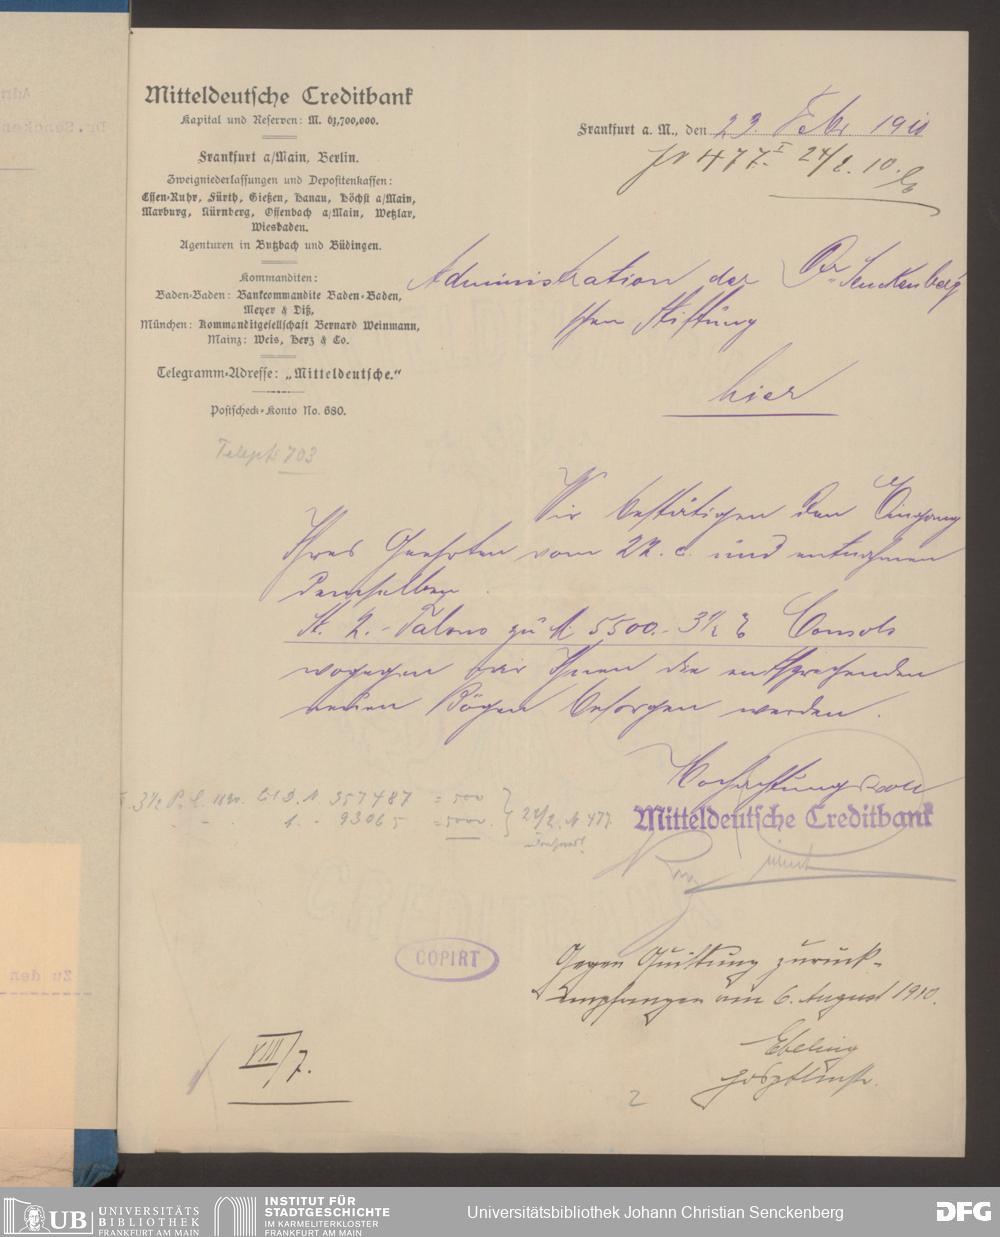 Mitteldeutsche Creditbank
Kapital und Reserven: M. 63,700,000.
Frankfurt a/Main, Berlin.
Zweigniederlassungen und Depositenkassen:
Essen-Ruhr, Fürth, Gießen, Hanau, Höchst a/Main,
Marburg, Nürnberg, Offenbach a/Main, Wetzlar,
Wiesbaden.
Agenturen in Butzbach und Büdingen.
Kommanditen:
Baden-Baden: Bankcommandite Baden-Baden,
Meyer & Diß,
München: Kommanditgesellschaft Bernard Weinmann,
Mainz: Weis, Herz & Co.
Telegramm-Adresse: „Mitteldeutsche."
Postscheck-Konto No. 680.
Teleph. 703
Frankfurt a. M., den 23. Febr 1910
J N 477. I 24/2. 10.
Administration der Dr Senckenberg
schen Stiftung
hier
Wir bestätigen den Eingang
Ihres Geehrten vom 22. c. und entnahmen
demselben
St. 2.- Talons zu M. 5500.- 3½ % Consols
wogegen wir Ihnen die entsprechenden
neuen Bögen besorgen werden.
Hochachtungsvoll
Mitteldeutsche Creditbank
3½ P. C. Lit D. N 357487 = 500
93065 = 5000.
22/2. N 477.
COPIRT
Gegen Quittung zurück-
empfangen am 6. August 1910.
Ebeling
VIII/7.
2
Zu den
UB UNIVERSITÄTS
BIBLIOTHEK
FRANKFURT AM MAIN
INSTITUT FÜR
STADTGESCHICHTE
IM KARMELITERKLOSTER
FRANKFURT AM MAIN
Universitätsbibliothek Johann Christian Senckenberg
DFG